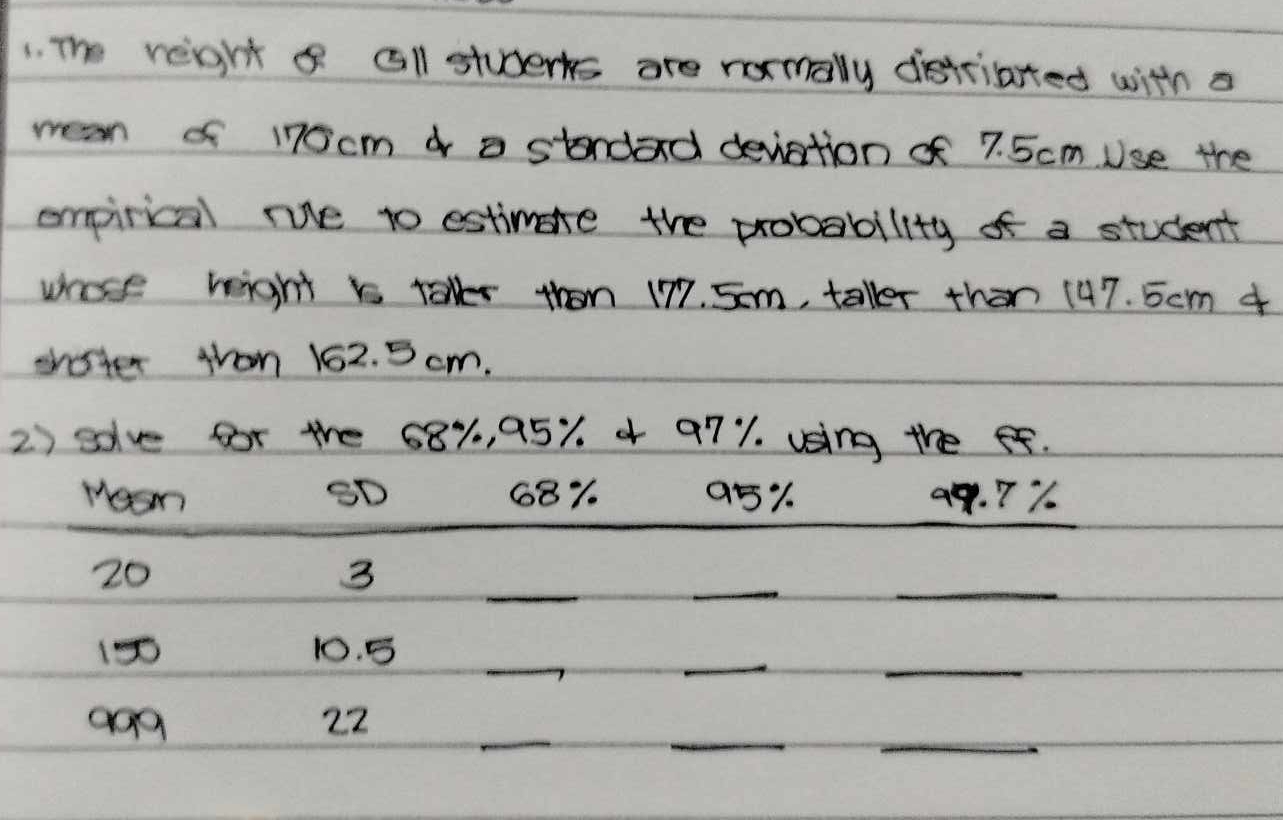 1. The height of all students are normally distributed with a
mean of 170cm & a standard deviation of 7.5cm Use the
empirical rule to estimate the probability of a student
whose height is taller than 177.5cm, taller than 147.5cm &
shoter than 162.5 cm.
2) solve for the 68%, 95% & 97% using the ff.
Mean SD 68% 95% 99.7%
20 3
150 10.5
999 22